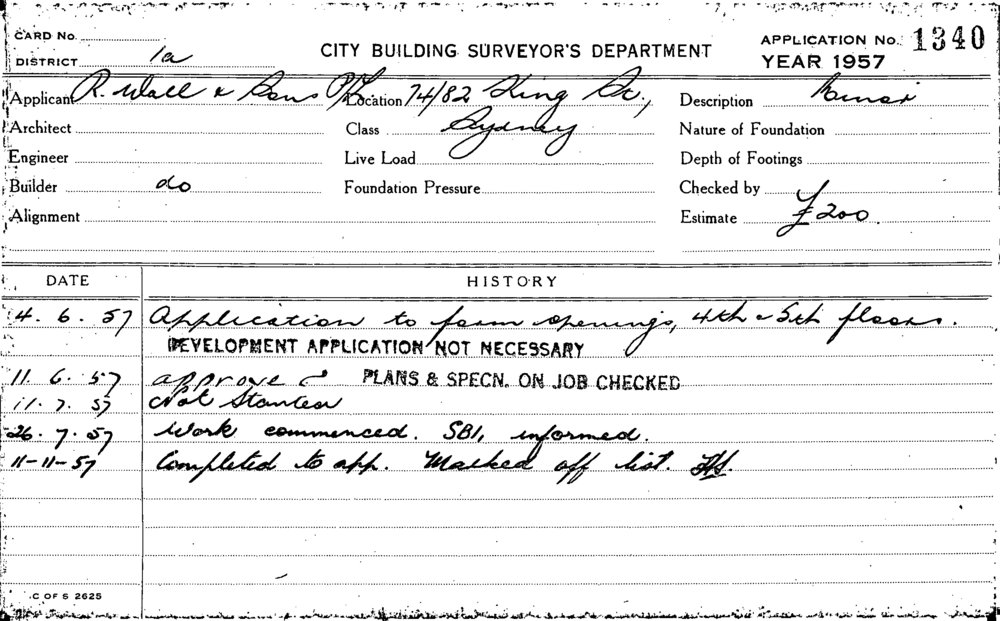 CARD No.
DISTRICT 1a
CITY BUILDING SURVEYOR'S DEPARTMENT
APPLICATION No. 1340
YEAR 1957
Applicant R. Wall & Sons P/L Location 74/82 King St., Description Minor
Architect Class Sydney Nature of Foundation
Engineer Live Load Depth of Footings
Builder do Foundation Pressure Checked by
Alignment Estimate £200.
DATE HISTORY
4. 6. 57 Application to form openings, 4th & 5th floors.
DEVELOPMENT APPLICATION NOT NECESSARY
11. 6. 57 approved PLANS & SPECN. ON JOB CHECKED
11. 7. 57 Not Started
26. 7. 57 Work commenced. SBI, informed.
11-11-57 Completed to app. Marked off list.
C OF S 2625